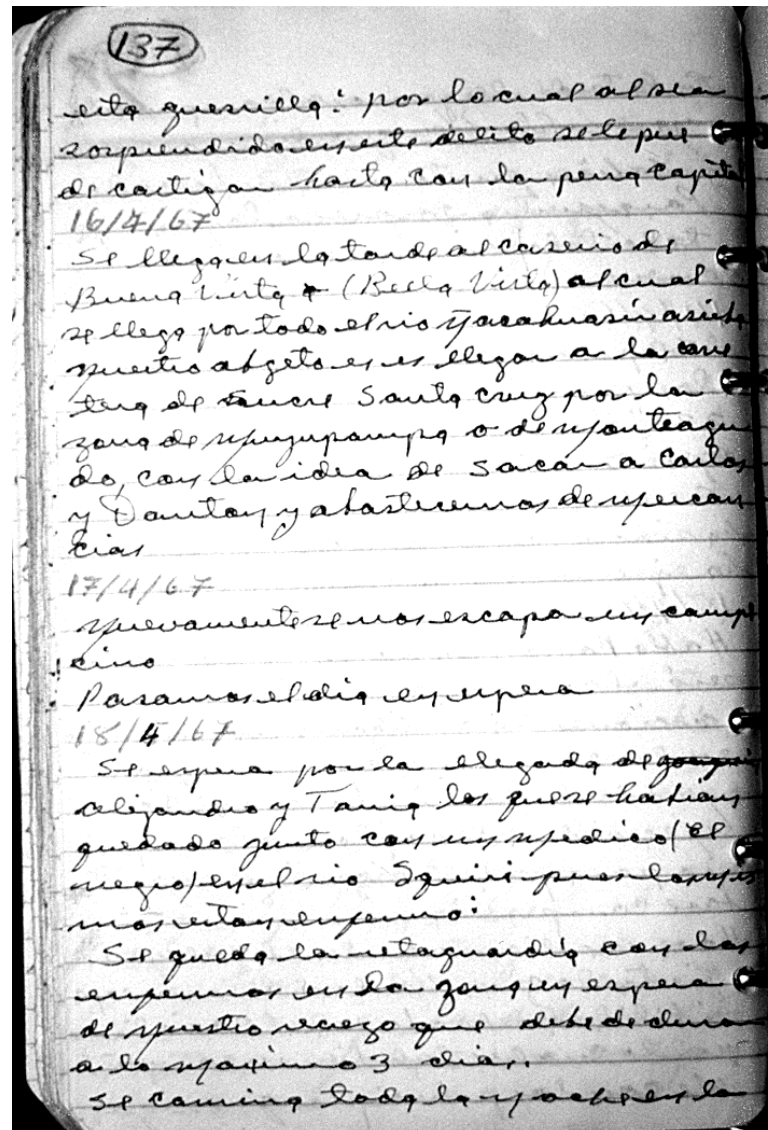 137
esta guerrilla: por lo cual al sea
sorprendido en este delito se le pue
de castigar hasta con la pena capita
16/4/67
Se llega en la tarde al caserio de
Buena Vista (Bella Vista) al cual
se llega por todo el rio Yacahuasin arriba
nuestro abgeto es es llegar a la carre
tera de Sucre Santa cruz por la
zona de Muyupampa o de Monteagu
do, con la idea de sacar a Carlos
y Danton y abastecernos de mercan
cias
17/4/67
Nuevamente se nos escapa un campe
cino
Pasamos el dia en espera
18/4/67
Se espera por la llegada de
Alejandro y Tania los que se habian
quedado junto con un medico (El
negro) en el rio Iquiri pues los mis
mos estan enfermo:
Se queda la retaguardia con los
enfermos en la zona en espera
de nuestro regezo que debe de dura
a lo maximo 3 dias.
Se camina toda la noche en la